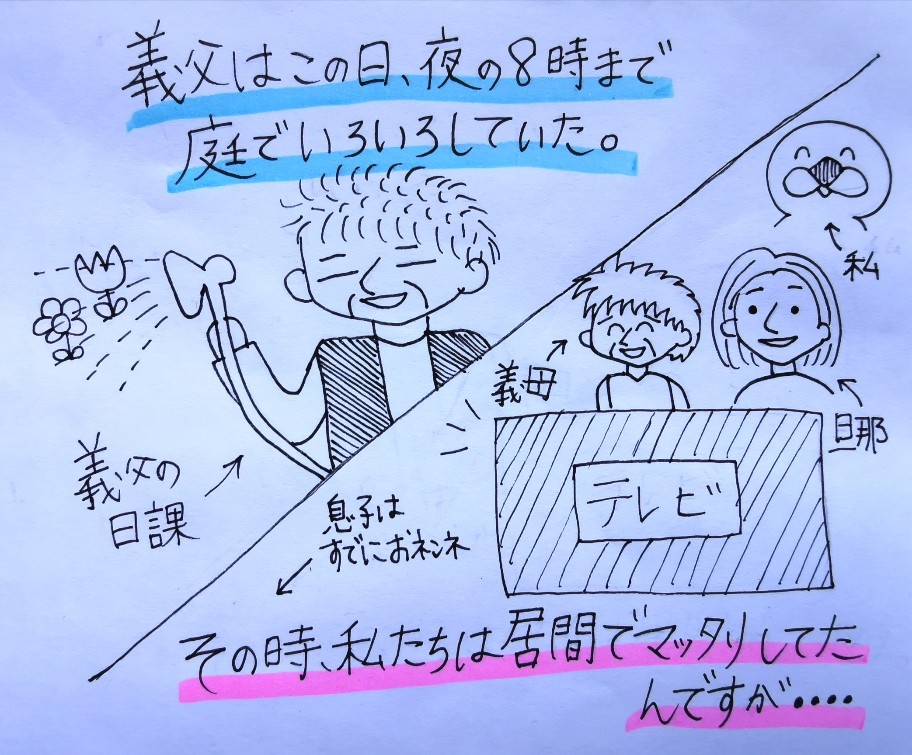 義父はこの日、夜の8時まで
庭でいろいろしていた。
私
義母
旦那
義父の
日課
テレビ
息子は
すでにおネンネ
その時、私たちは居間でマッタリしてた
んですが・・・・